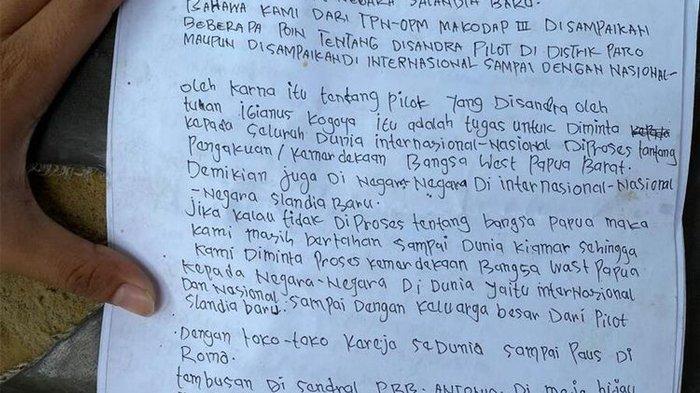 NEGARA SALANDIA BARU.
BAHAWA KAMI DARI TPN-OPM MAKODAP III DISAMPAIKAN
BEBERAPA POIN TENTANG DISANDRA PILOT DI DISTRIK PARO
MAUPUN DISAMPAIKANDI INTERNASIONAL SAMPAI DENGAN NASIONAL-
oleh karna itu tentang pilot yang Disandra oleh
tuhan iGianus Kogoya itu adalah tugas untuk Diminta kepada
kepada Seluruh Dunia internasional-Nasional DiProses tantang
Pangakuan/kamardekaan Bangsa West Papua Barat.
Demikian Juga Di Negara Negara Di internasional-Nasional
-Negara Slandia Baru.
Jika kalau tidak DiProses tentang bangsa papua maka
kami masih bertahan sampai Dunia kiamar sehingga
kami Diminta Proses kamardekaan Bangsa Wast Papua
Kepada Negara-Negara Di Dunia yaitu internasional
Dan Nasional. sampai Dengan keluarga besar Dari Pilot
Slandia baru.
Dengan toko-toko Kareja seDunia sampai Paus Di
Roma.
tambusan Di sandral PBB. ANTONIO Di meja hijau